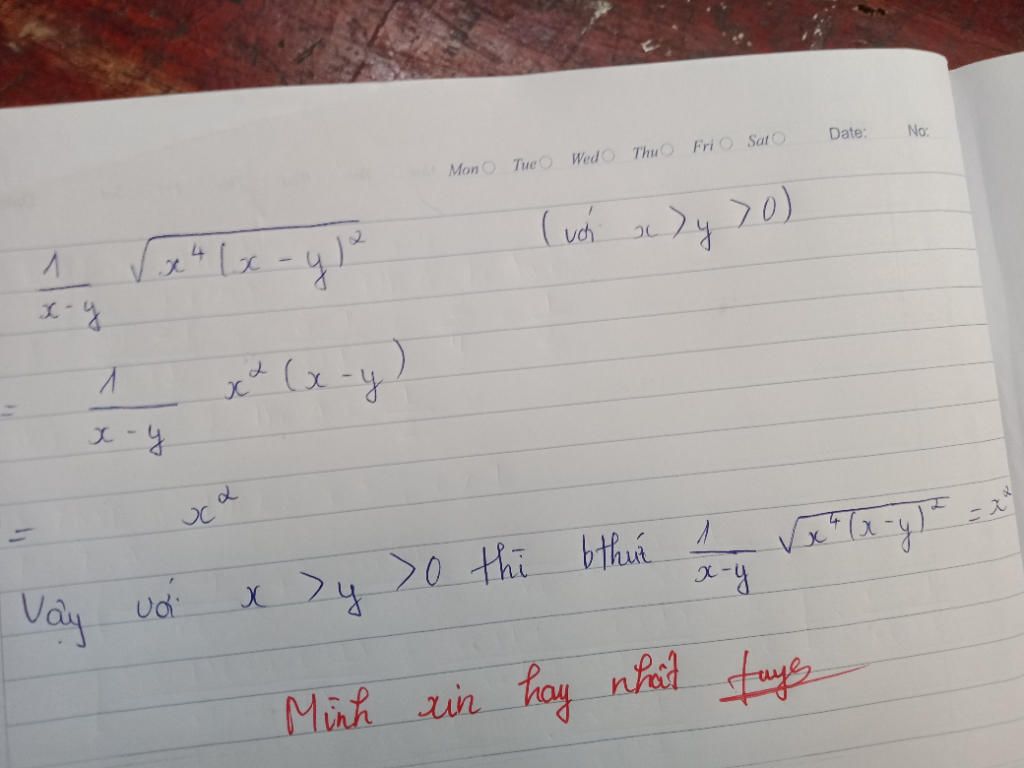 Mon Tue Wed Thu Fri Sat Date: No:
1/(x-y) √(x⁴(x-y)²) (với x>y>0)
= 1/(x-y) x²(x-y)
= x²
Vậy với x>y>0 thì bthức 1/(x-y) √(x⁴(x-y)²) = x²
Mình xin hay nhất